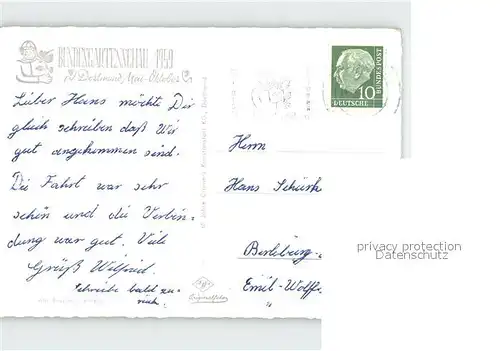 BUNDESGARTENSCHAU 1959
in Dortmund, Mai-Oktober
Lieber Hans möchte Dir
gleich schreiben daß Wir
gut angekommen sind.
Die Fahrt war sehr
schön und die Verbin-
dung war gut. Viele
Grüß Wilfried.
Schreibe bald zu-
rück.
10
DEUTSCHE
BUNDESPOST
Herrn
Hans
Berleburg
Emil-Wolff
Agfa
privacy protection
Datenschutz